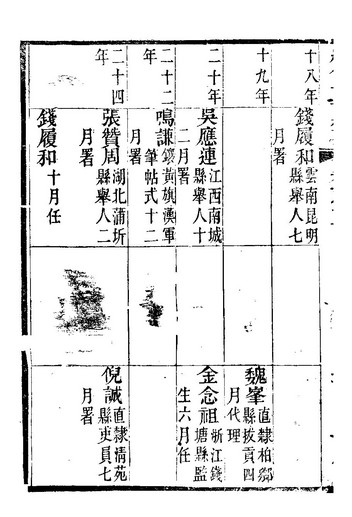 十八年
錢履和雲南昆明縣舉人七月署
十九年
魏峯直隸柏鄉縣拔貢四月代理
二十年
吳應連江西南城縣舉人十二月署
金念祖浙江錢塘縣監生六月任
二十二年
鳴謙鑲黃旗漢軍筆帖式十二月署
二十四年
張贊周湖北蒲圻縣舉人二月署
倪誠直隸清苑縣吏員七月署
錢履和十月任